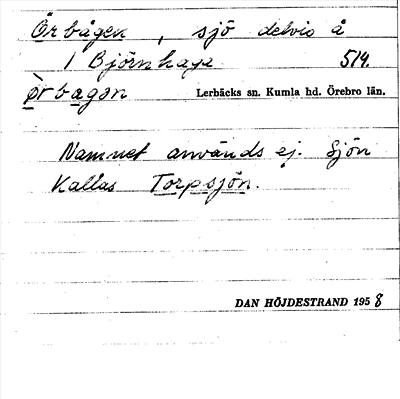 Örbågen, sjö delvis å
1 Björnhage 514.
ɷ̀rbagən Lerbäcks sn. Kumla hd. Örebro län.
Namnet används ej. Sjön
kallas Torpsjön.
DAN HÖJDESTRAND 1958